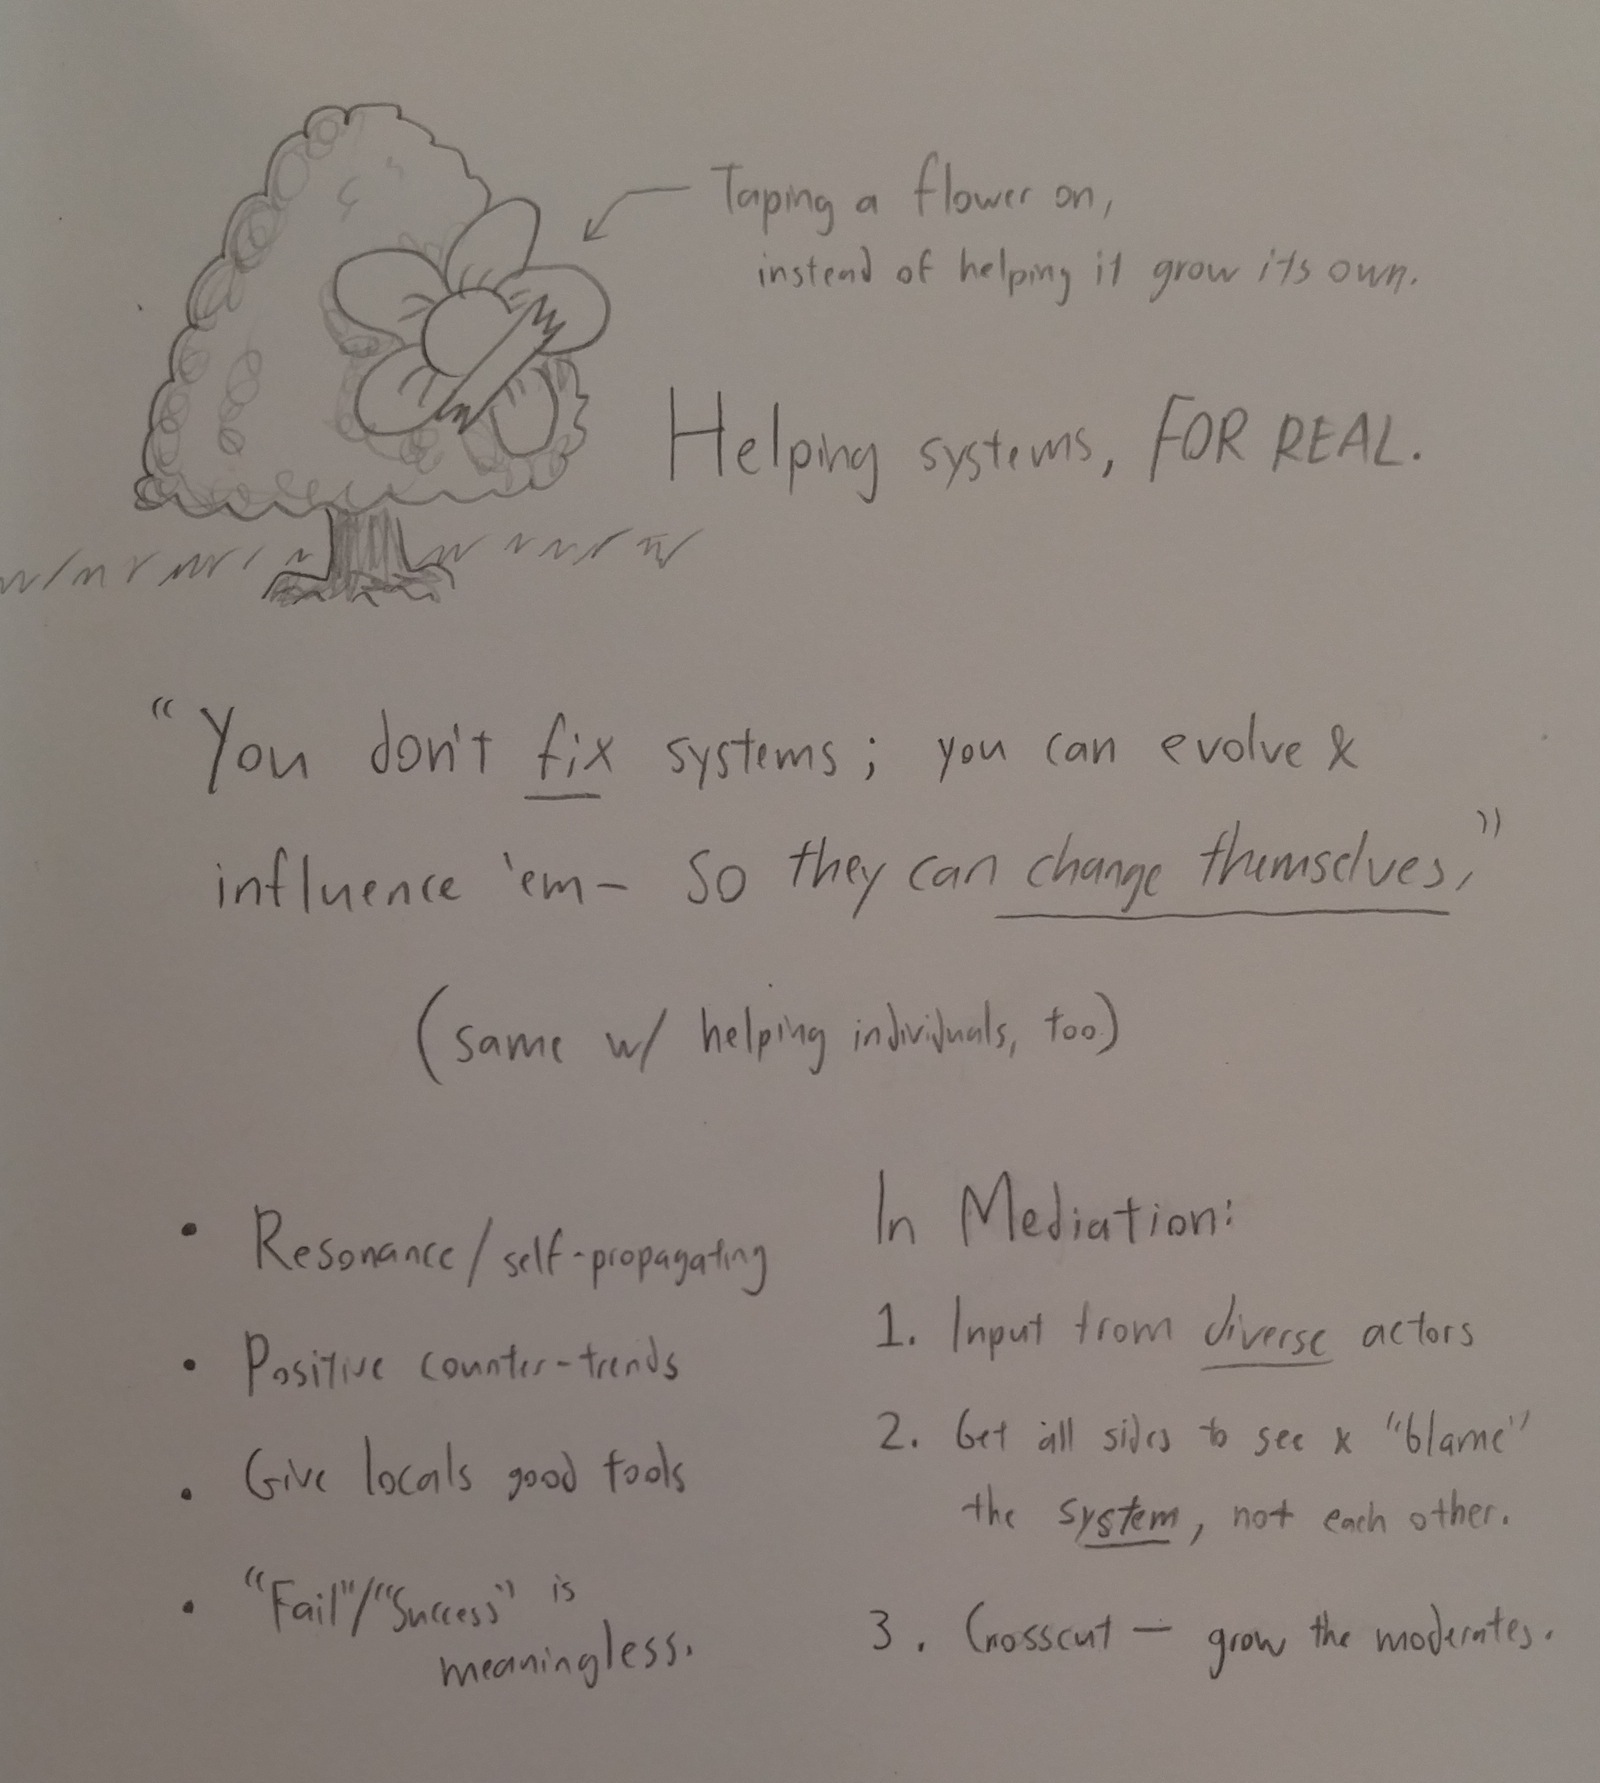 Taping a flower on,
instead of helping it grow its own.
Helping systems, FOR REAL.
"You don't fix systems; you can evolve &
influence 'em - so they can change themselves,"
(same w/ helping individuals, too)
• Resonance/self-propagating
• Positive counter-trends
• Give locals good tools
• "Fail"/"Success" is
meaningless.
In Mediation:
1. Input from diverse actors
2. Get all sides to see & "blame"
the system, not each other.
3. Crosscut — grow the moderates.